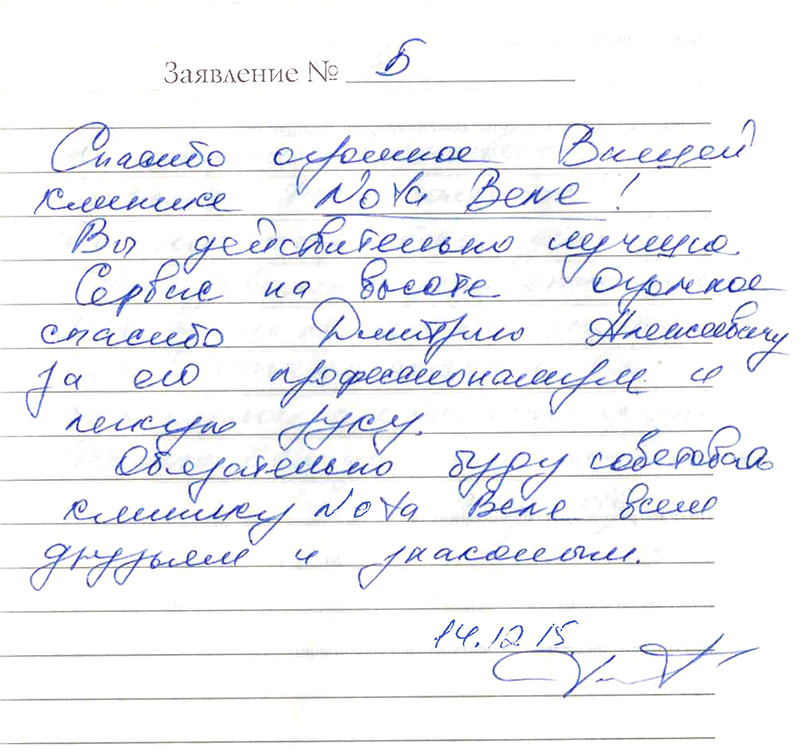 Заявление № Б
Спасибо огромное Вашей
клинике Nota Bene!
Вы действительно лучшие.
Сервис на высоте. Огромное
спасибо Дмитрию Алексеевичу
за его профессионализм и
легкую руку.
Обязательно буду советовать
клинику Nota Bene всем
друзьям и знакомым.
14.12.15